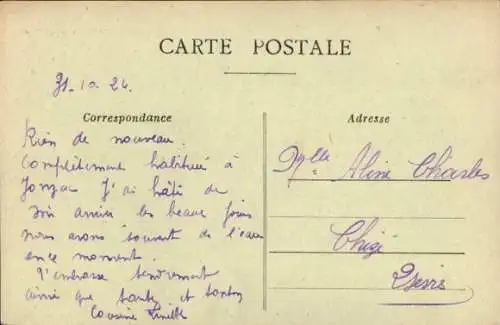 CARTE POSTALE
31.10.24.
Correspondance
Rien de nouveau.
Complètement habitué à
Jonzac J'ai hâti de
voir arriver les beaux jours
nous avons souvent de l'eau
en ce moment.
J'embrasse tendrement
ainsi que tante et tonton
Cousine
Adresse
Mlle Aline Charles
Chizé
2 Sèvres